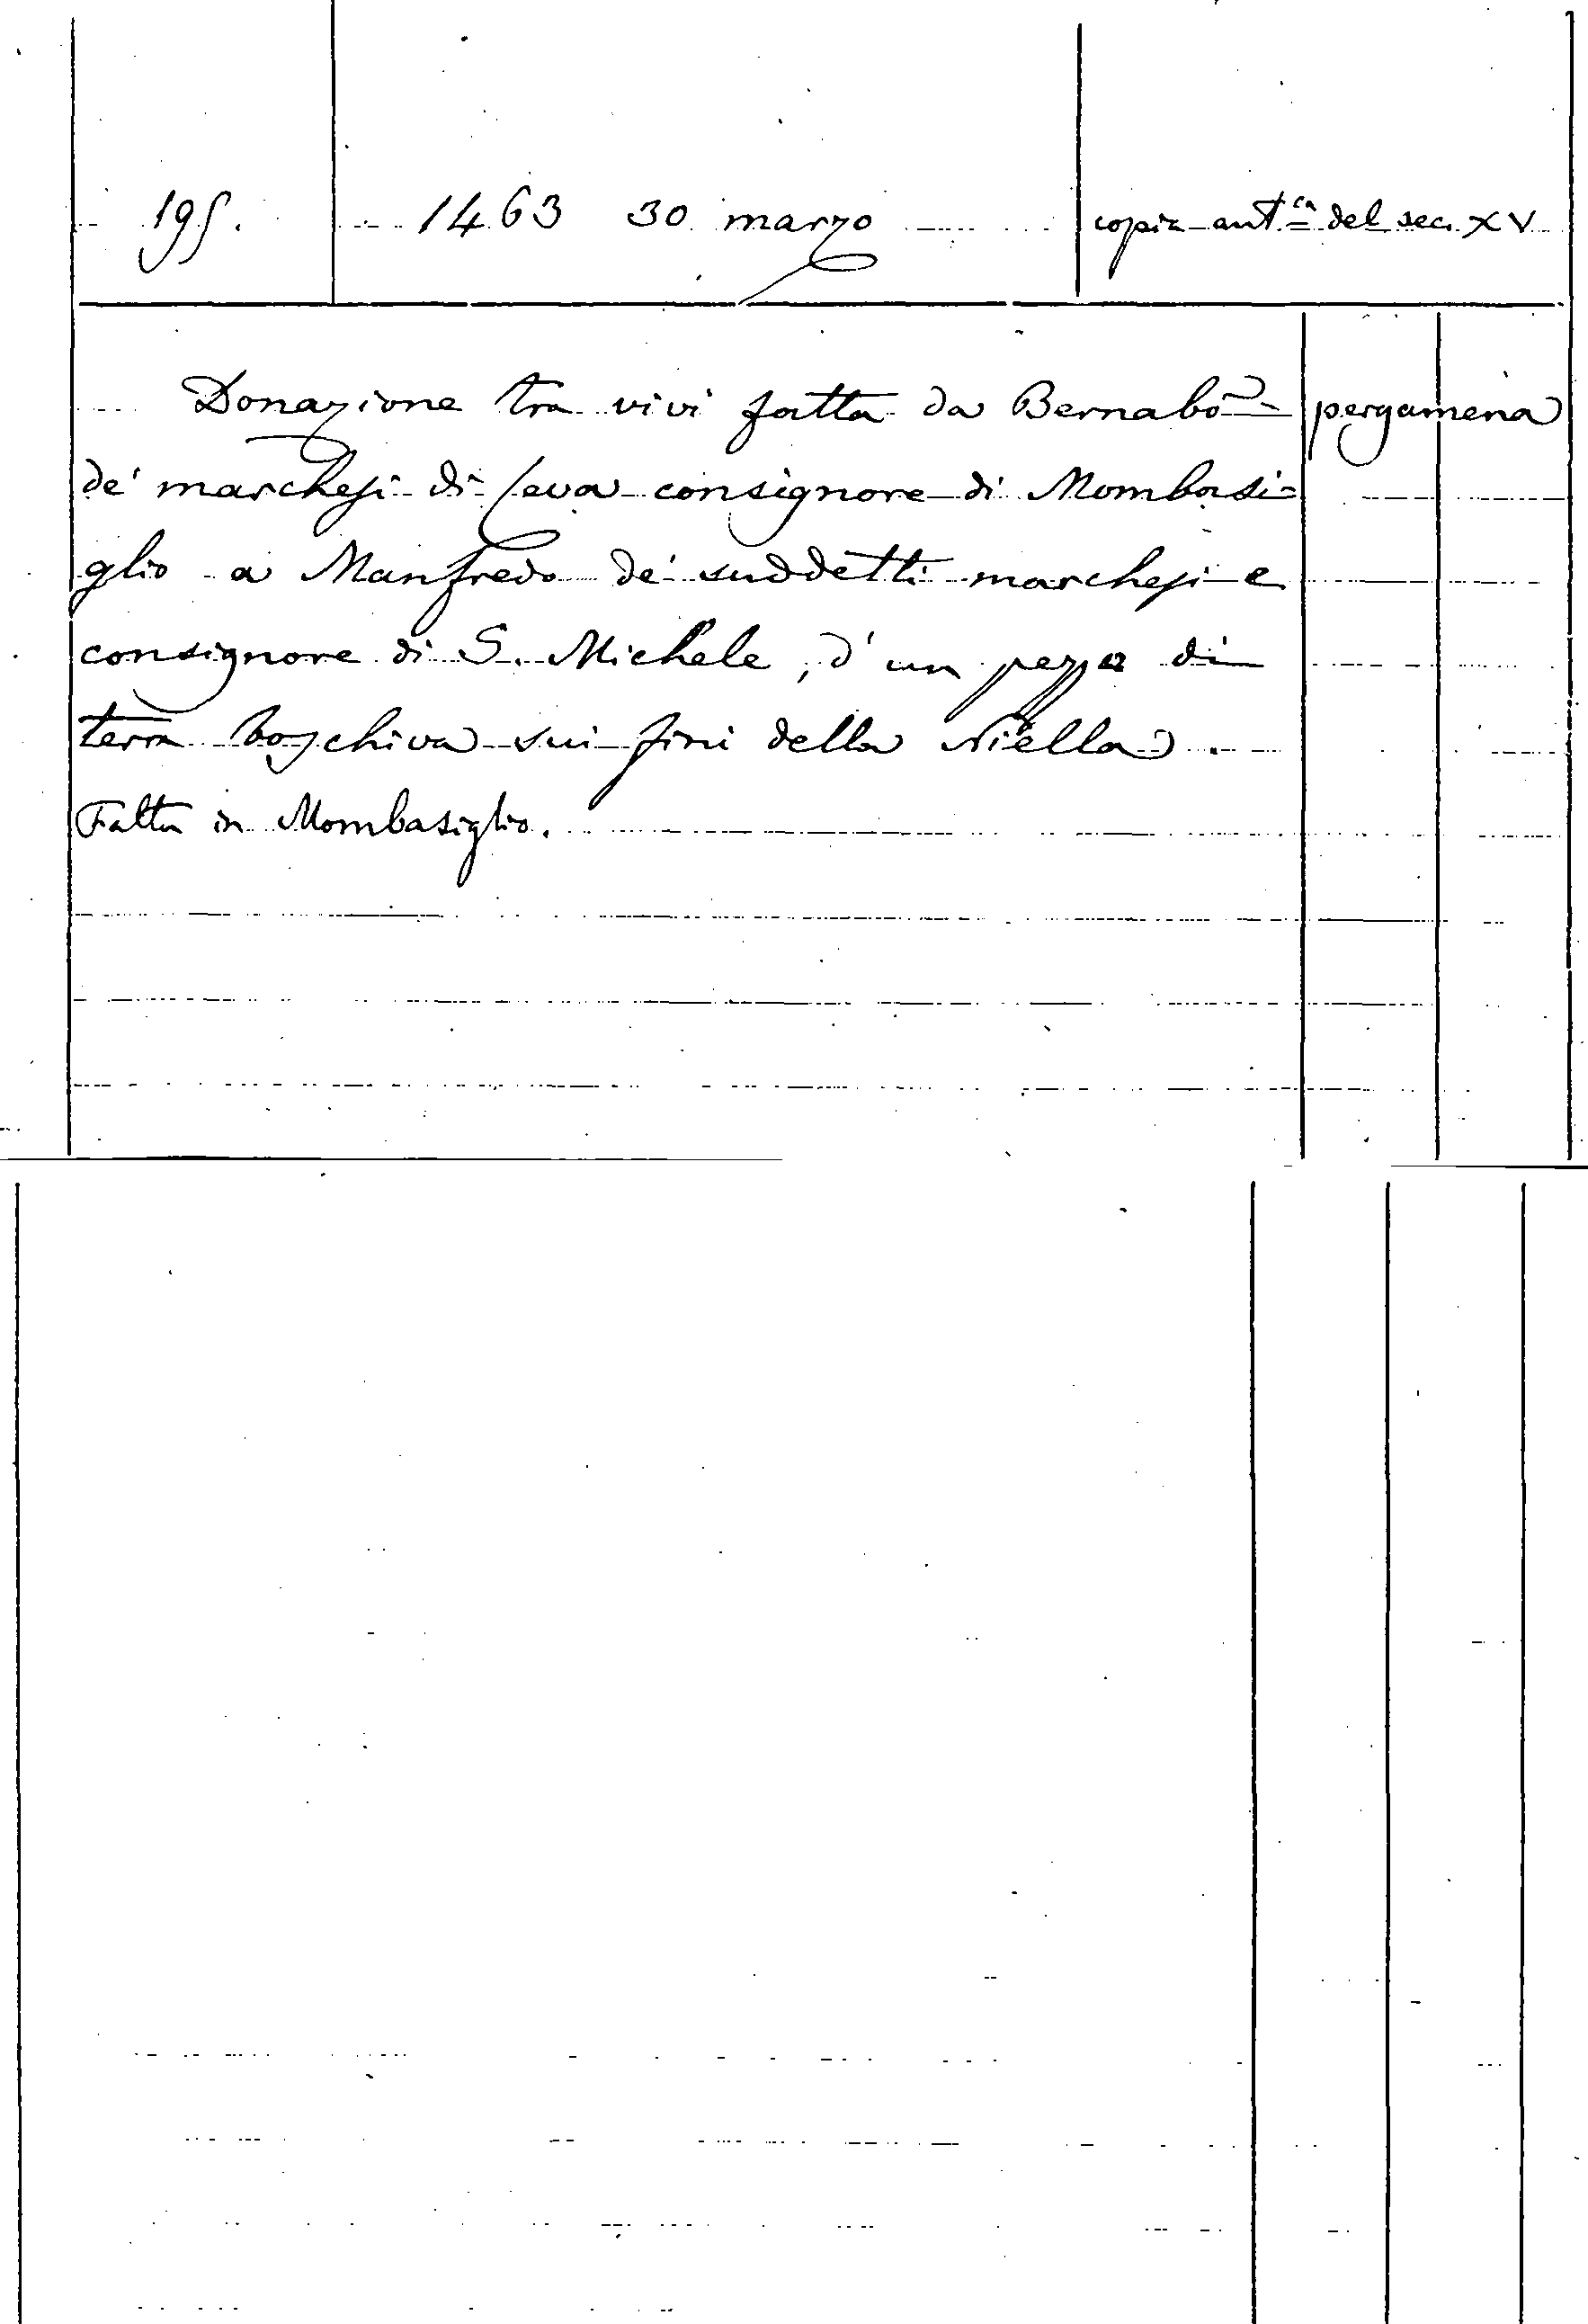 195. 1463 30 marzo copia aut.ca del sec. XV
Donazione tra vivi fatta da Bernabò pergamena
de' marchesi di Ceva consignore di Mombasi=
glio a Manfredo de' suddetti marchesi e
consignore di S. Michele, d'un pezzo di
terra boschiva sui fini della Niella.
Fatta in Mombasiglio.